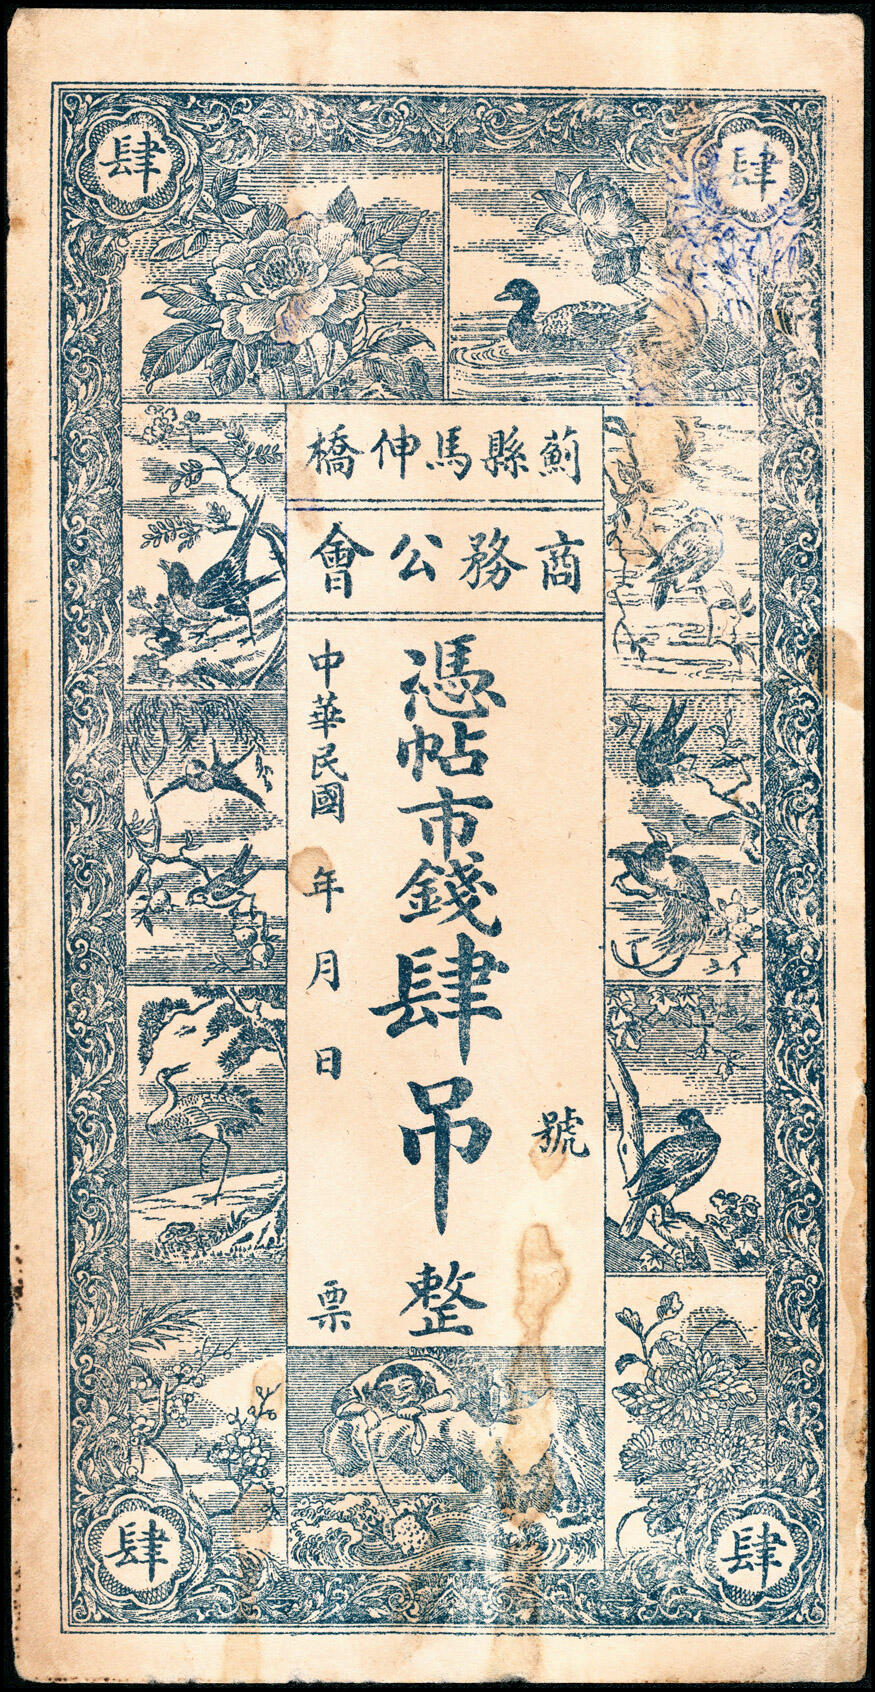 肆
肆
薊縣馬伸橋
商務公會
號
憑帖市錢肆吊整
中華民國 年 月 日 票
肆
肆